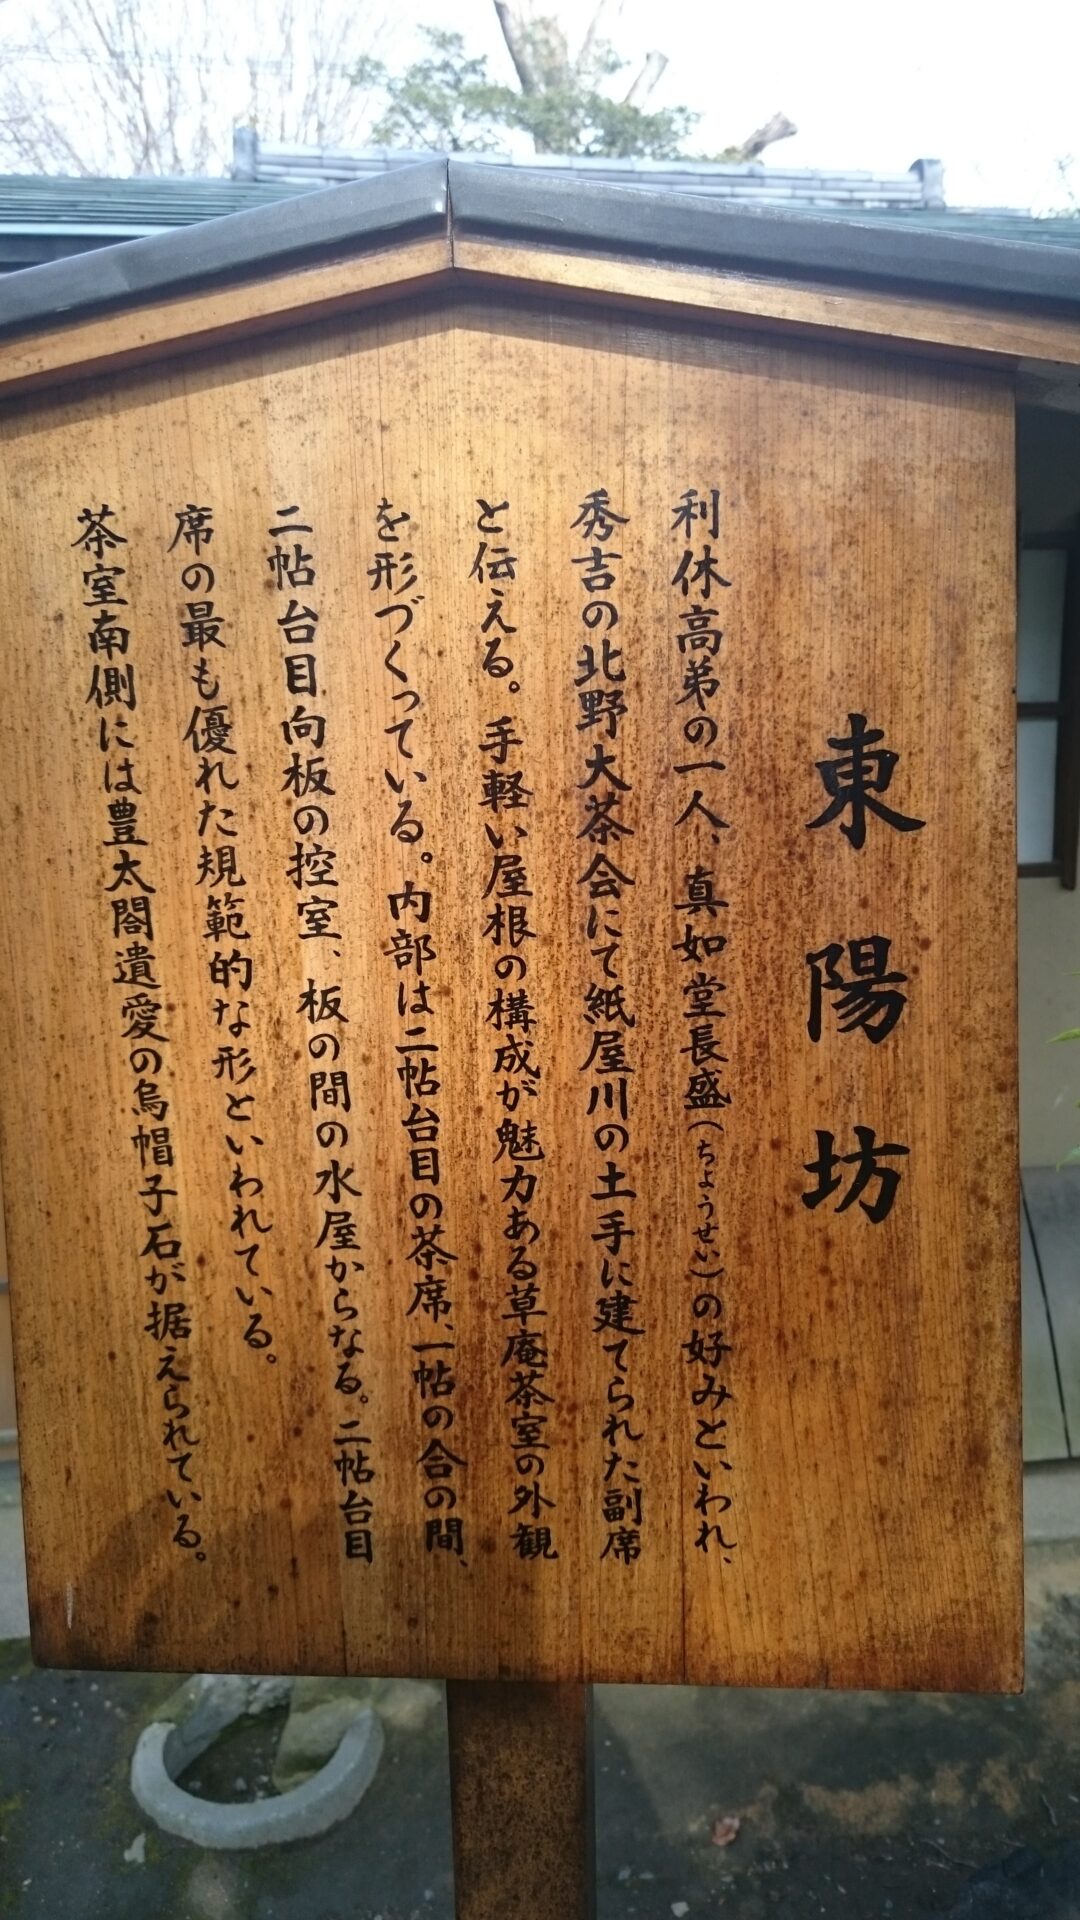 東陽坊
利休高弟の一人、真如堂長盛(ちょうせい)の好みといわれ、
秀吉の北野大茶会にて紙屋川の土手に建てられた副席
と伝える。手軽い屋根の構成が魅力ある草庵茶室の外観
を形づくっている。内部は二帖台目の茶席、一帖の合の間、
二帖台目向板の控室、板の間の水屋からなる。二帖台目
席の最も優れた規範的な形といわれている。
茶室南側には豊太閤遺愛の烏帽子石が据えられている。